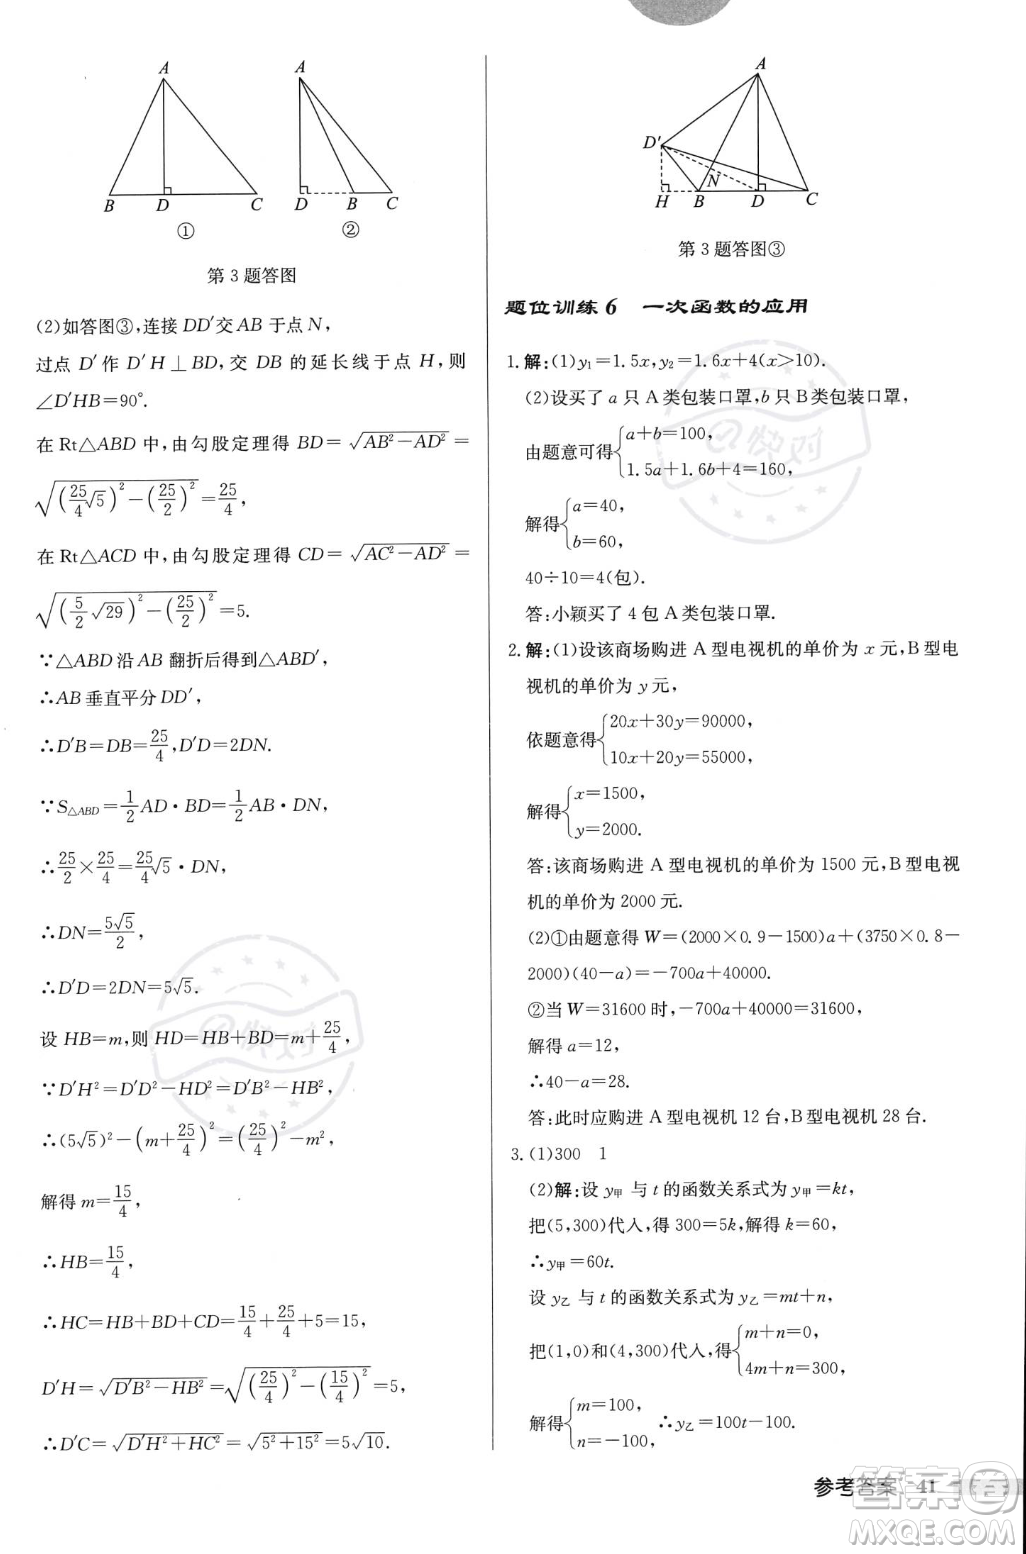 A
B D C
①
A
D B C
②
第 3 题答图
(2)如答图③,连接 DD′交 AB 于点 N,
过点 D′ 作 D′H⊥BD,交 DB 的延长线于点 H,则
∠D′HB=90°.
在 Rt△ABD 中,由勾股定理得 BD=√(AB²-AD²)=
√((25/4 √5)²-(25/2)²)=25/4,
在 Rt△ACD 中,由勾股定理得 CD=√(AC²-AD²)=
√((5/2 √29)²-(25/2)²)=5.
∵△ABD 沿 AB 翻折后得到△ABD′,
∴AB 垂直平分 DD′,
∴D′B=DB=25/4,D′D=2DN.
∵S△ABD=1/2 AD·BD=1/2 AB·DN,
∴25/2×25/4=25/4 √5·DN,
∴DN=5√5/2,
∴D′D=2DN=5√5.
设 HB=m,则 HD=HB+BD=m+25/4,
∵D′H²=D′D²-HD²=D′B²-HB²,
∴(5√5)²-(m+25/4)²=(25/4)²-m²,
解得 m=15/4,
∴HB=15/4,
∴HC=HB+BD+CD=15/4+25/4+5=15,
D′H=√(D′B²-HB²)=√((25/4)²-(15/4)²)=5,
∴D′C=√(D′H²+HC²)=√(5²+15²)=5√10.
A
D′
N
H B D C
第 3 题答图③
题位训练 6 一次函数的应用
1. 解:(1)y₁=1.5x,y₂=1.6x+4(x>10).
(2)设买了 a 只 A 类包装口罩,b 只 B 类包装口罩,
由题意可得{a+b=100,
1.5a+1.6b+4=160,
解得{a=40,
b=60,
40÷10=4(包).
答:小颖买了 4 包 A 类包装口罩.
2. 解:(1)设该商场购进 A 型电视机的单价为 x 元,B 型电
视机的单价为 y 元,
依题意得{20x+30y=90000,
10x+20y=55000,
解得{x=1500,
y=2000.
答:该商场购进 A 型电视机的单价为 1500 元,B 型电视
机的单价为 2000 元.
(2)①由题意得 W=(2000×0.9-1500)a+(3750×0.8-
2000)(40-a)=-700a+40000.
②当 W=31600 时,-700a+40000=31600,
解得 a=12,
∴40-a=28.
答:此时应购进 A 型电视机 12 台,B 型电视机 28 台.
3. (1)300 1
(2)解:设 y甲 与 t 的函数关系式为 y甲=kt,
把(5,300)代入,得 300=5k,解得 k=60,
∴y甲=60t.
设 y乙 与 t 的函数关系式为 y乙=mt+n,
把(1,0)和(4,300)代入,得{m+n=0,
4m+n=300,
解得{m=100,
n=-100, ∴y乙=100t-100.
参考答案 41
快对
快对
答案卷
MXQE.COM